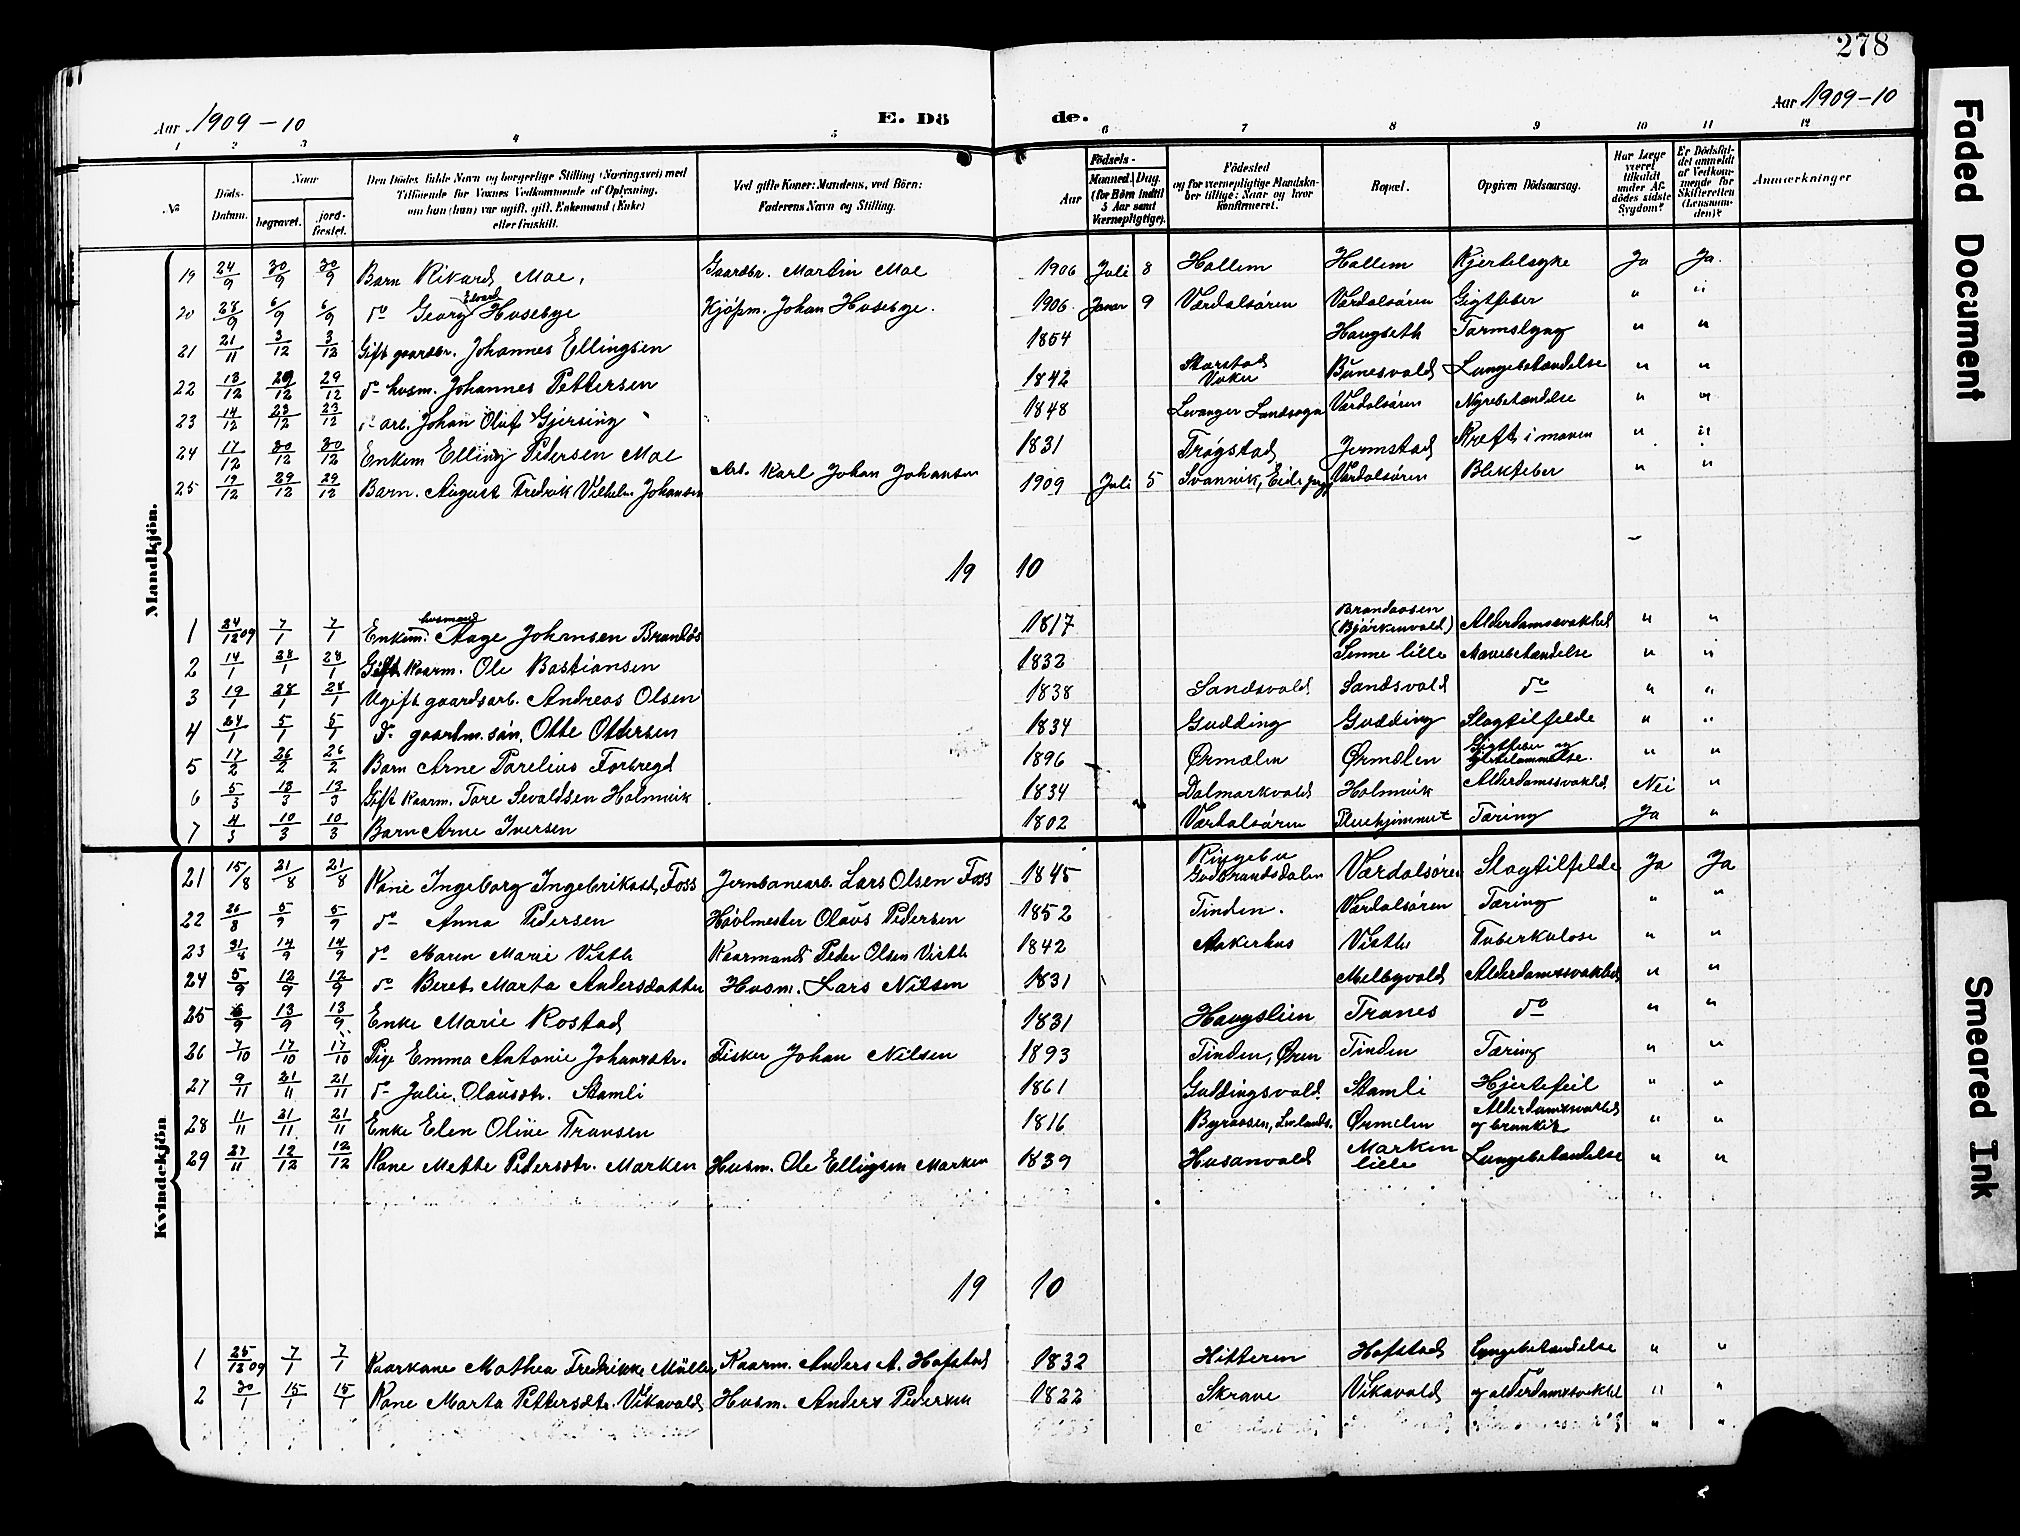 278
Aar 1909-10 E. Dö
de. Aar 1909-10
1 2 3 4 5 6 7 8 9 10 11 12
No
Döds-Datum.
Naar
begravet.
jordfæstet.
Den Dödes fulde Navn og borgerlige Stilling (Næringsvei) med
Tilföiende for Voxnes Vedkommende af Oplysning,
om han (hun) var ugift, gift, Enkemand (Enke)
eller fraskilt.
Ved gifte Koner: Mandens, ved Börn:
Faderens Navn og Stilling.
Födsels-
Aar
Maaned. Dag.
(for Börn indtil
5 Aar samt
Værnepligtige).
Födested
og for værnepligtige Mandskaber tillige: Naar og hvor
konfirmeret.
Bopæl.
Opgiven Dödsaarsag.
Har Læge
været
tilkaldt
under Afdödes sidste
Sygdom?
Er Dödsfaldet anmeldt
af Vedkommende for
Skifteretten
(Lensmanden)?
Anmærkninger
Mandkjön.
19 24/9 30/9 30/9 Barn Rikard Moe, Gaardbr. Martin Moe 1906 Juli 8 Hallem Hallem Kjertelsyke Ja Ja.
20 28/9 6/9 6/9 do Georg Edvard Husebye Kjöpm. Johan Husebye. 1906 Januar 9 Værdalsören Værdalsören Gigtfeber " "
21 21/11 3/12 3/12 Gift gaardbr. Johannes Ellingsen 1854 Haugseth Tarmslyng " "
22 13/12 29/12 29/12 do husm. Johannes Pettersen 1842 Skarstad Vuku Bunesvald Lungebetændelse " "
23 14/12 23/12 23/12 " arb. Johan Oluf Gjersing 1848 Levanger Landsogn Værdalsören Nyrebetændelse " "
24 17/12 30/12 30/12 Enkem Elling Pedersen Moe 1831 Trögstad Jermstad Kræft i maven " "
25 19/12 29/12 29/12 Barn. August Fredrik Vilhelm Johansen Arb. Karl Johan Johansen 1909 Juli 5 Svannik, Eids Værdalsören Blekfeber " "
19 10
1 24/12 09 7/1 7/1 Enkem. husmand Aage Johnsen Brandås 1817 Brandaasen (Bjørkenvald) Alderdomssvakhed " "
2 14/1 28/1 28/1 Gift Kaarm. Ole Bastiansen 1832 Senne lille Mavebetændelse " "
3 19/1 28/1 28/1 Ugift gaardsarb. Andreas Olsen 1838 Sandsvald Sandsvald do " "
4 24/1 5/1 5/1 do gaardm. sön, Otte Ottersen 1834 Gudding Gudding Slagtilfelde " "
5 17/2 26/2 26/2 Barn Arne Parelius Forbregd 1896 Ørmælen Ørmelen Gigtfeber og " "
6 5/3 13/3 13/3 Gift Kaarm. Tore Sevaldsen Holmvik 1834 Dalmarkvald Holmvik Alderdomssvakhed. Nei "
7 4/3 10/3 10/3 Barn Arne Iversen 1802 Værdalsören Pleiehjemmet Tæring Ja "
Kvindekjön
21 15/8 21/8 21/8 Kone Ingeborg Ingebrikstd. Foss Jernbanearb. Lars Olsen Foss 1845 Ringebu Gudbrandsdalen Værdalsören Slagtilfelde Ja Ja
22 26/8 5/9 5/9 do Anna Pedersen Hövlmester Olaüs Pedersen 1852 Tinden. Værdalsören Tæring " "
23 31/8 14/9 14/9 do Maren Marie Visth Kaarmand Peder Olsen Visth 1842 Aakerhus Visthe Tuberkulose " "
24 5/9 12/9 12/9 do Beret Marta Andersdatter Husm. Lars Nilsen 1831 Melbyvald Alderdomssvakhed " "
25 6/9 13/9 13/9 Enke Marie Rostad 1831 Haugslien Trones do " "
26 7/10 17/10 17/10 Pige Emma Antonie Johansdtr. Fisker Johan Nilsen 1893 Tinden, Øren Tinden Tæring " "
27 9/11 21/11 21/11 do Julie Olausdtr. Stamli 1861 Guddingsvald. Stamli Hjertefeil " "
28 11/11 21/11 21/11 Enke Elen Oline Transen 1816 Byraasen, Ørmelen Alderdomssvakhed og bronkit " "
29 27/11 12/12 12/12 Kone Mette Pedersdtr. Marken Husm. Ole Elligsen Marken 1839 Husanvald Marken lille Lungebetændelse " "
19 10
1 25/12 09 7/1 7/1 Kaarkone Mathea Fredrikke Müller Kaarm. Anders A. Hofstad 1832 Hitteren Hofstad Lungebetændelse " "
2 30/1 15/1 15/1 Kone Marta Pettersdtr. Vikavald Husm. Anders Pedersen 1822 Skrave Vikavald og alderdomssvakhed " "
Faded Document
Smeared Ink